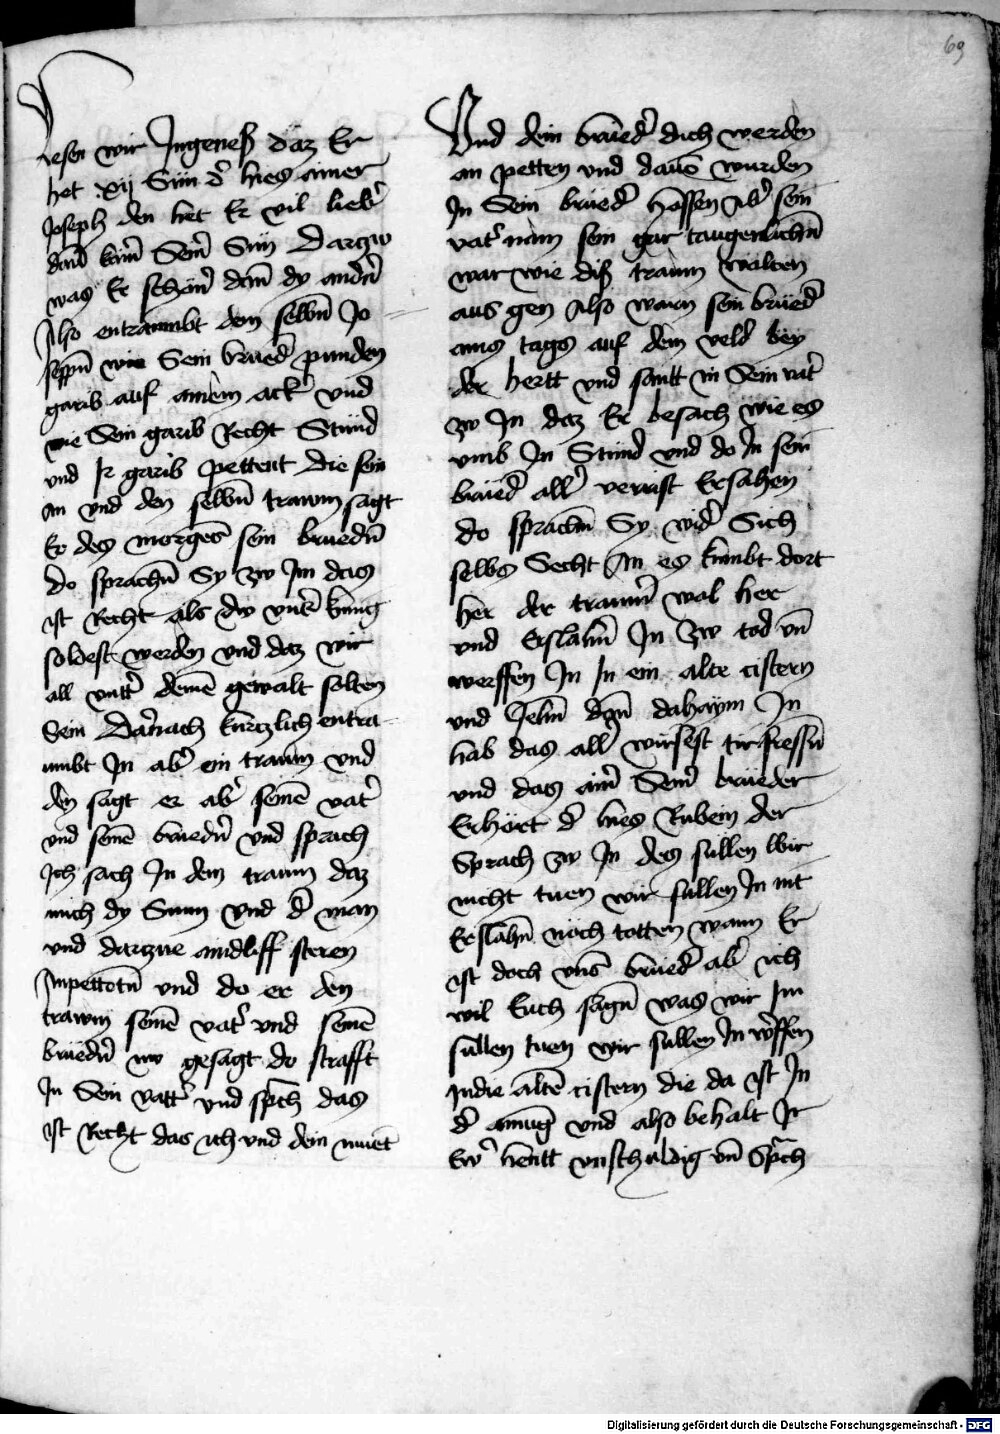 69
lesen wir Jngenesß daz Er
het xij Sün d' hies ainer
Joseph den het Er vil lieb'
dan̄ kain̄ Sein̄ Sün Darzw
was Er schön̄ dan̄ dy ander̄
Also entrawmbt dem selbn̄ Jo
sepn̄ wie Sein brued' punden
garib auf ainem ack' vnd
wie Sein garib Recht Stund
vnd Jr garib pettent die sein
an vnd den selbn̄ trawm sagt
Er des morgēs sein bruedn̄
do sprachn̄ Sy zw Jm das
ist Recht als dw vnser kunig
soldest werden vnd daz wir
all vntt' deinē gewalt solten
Sein Darnach kurtzlich entra-
umbt Jn ab' ein trawm vnd
den sagt er ab' seinē vat'
vnd seinē bruedn̄ vnd sprach
Jch sach Jn dem trawm daz
mich dy Sunn vnd d' man
vnd darzue aindliff steren
Anpettotn̄ vnd do er den
trawm seinē vat' vnd seinē
bruedn̄ nw gesagt do strafft
Jn Sein vatt' vnd sp̄ch das
ist Recht das ich vnd dein muet'
Vnd dein brued' dich werden
an petten vnd dauō wurden
Jn Sein brued' hassen Ab' sein
vat' nam sein gar taugenlichn̄
war wie diß trawm wolten
aus gen Also warn sein brued'
ains tags auf dem veld bey
der hertt vnd santt in Sein vat'
zw Jn daz Er besach wie es
vmb Jn Stund vnd do Jn sein
brued' all' verrist Ersahen
do sprachn̄ Sy wid' Sich
selbs Secht An es kumbt dort
her der trawm' wol her
vnd Erslahn̄ Jn zw tod vn̄
werffen Jn Jn ein alte cistern
vnd Jehn̄ dan̄ dahaym Jn
hab das all' wirsest tir fressn̄
vnd das ain' Sein' brueder
Erhört d' hies Ruben der
Sprach zw Jn des sullen wir
nicht tuen wir sullen Jn nit
Erslahn̄ noch totten wann Er
ist doch vns' brued' ab' ich
wil Euch sagn̄ was wir Jm
sullen tuen wir sullen Jn w'ffen
Jndie altē cistern die da ist Jn
d' ainug vnd also behalt Jr
Ew' hentt vnschuldig vn̄ Sprach
Digitalisierung gefördert durch die Deutsche Forschungsgemeinschaft - DFG